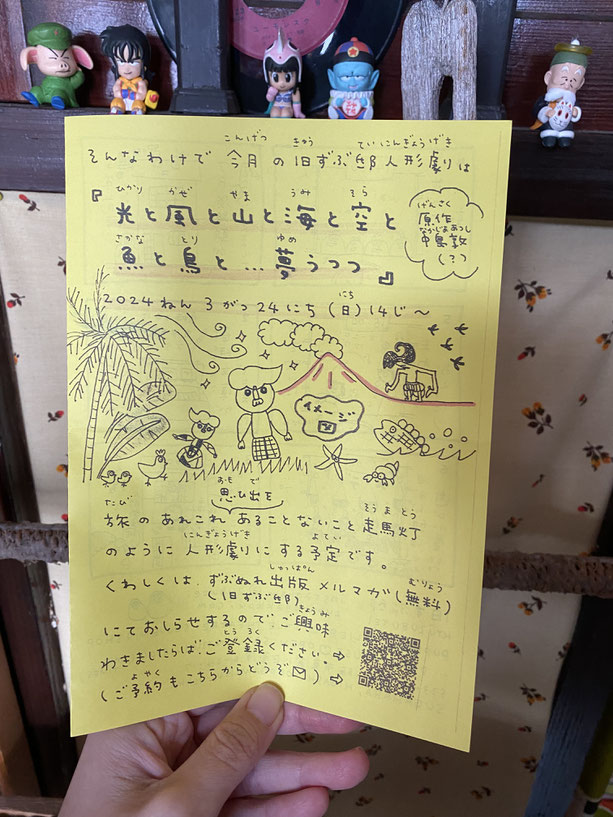 そんなわけで 今月の旧ずぶ邸人形劇は
『光と風と山と海と空と
魚と鳥と…夢うつつ』
原作
中島敦
(?)
2024ねん3がつ24にち(日)14じ〜
イメージ
図
思ひ出を
旅のあれこれあることないこと走馬灯
のように人形劇にする予定です。
くわしくは、ずぶぬれ出版メルマガ(無料)
(旧ずぶ邸)
にておしらせするので、ご興味
わきましたらば、ご登録ください。⇨
(ご予約もこちらからどうぞ✉)⇨